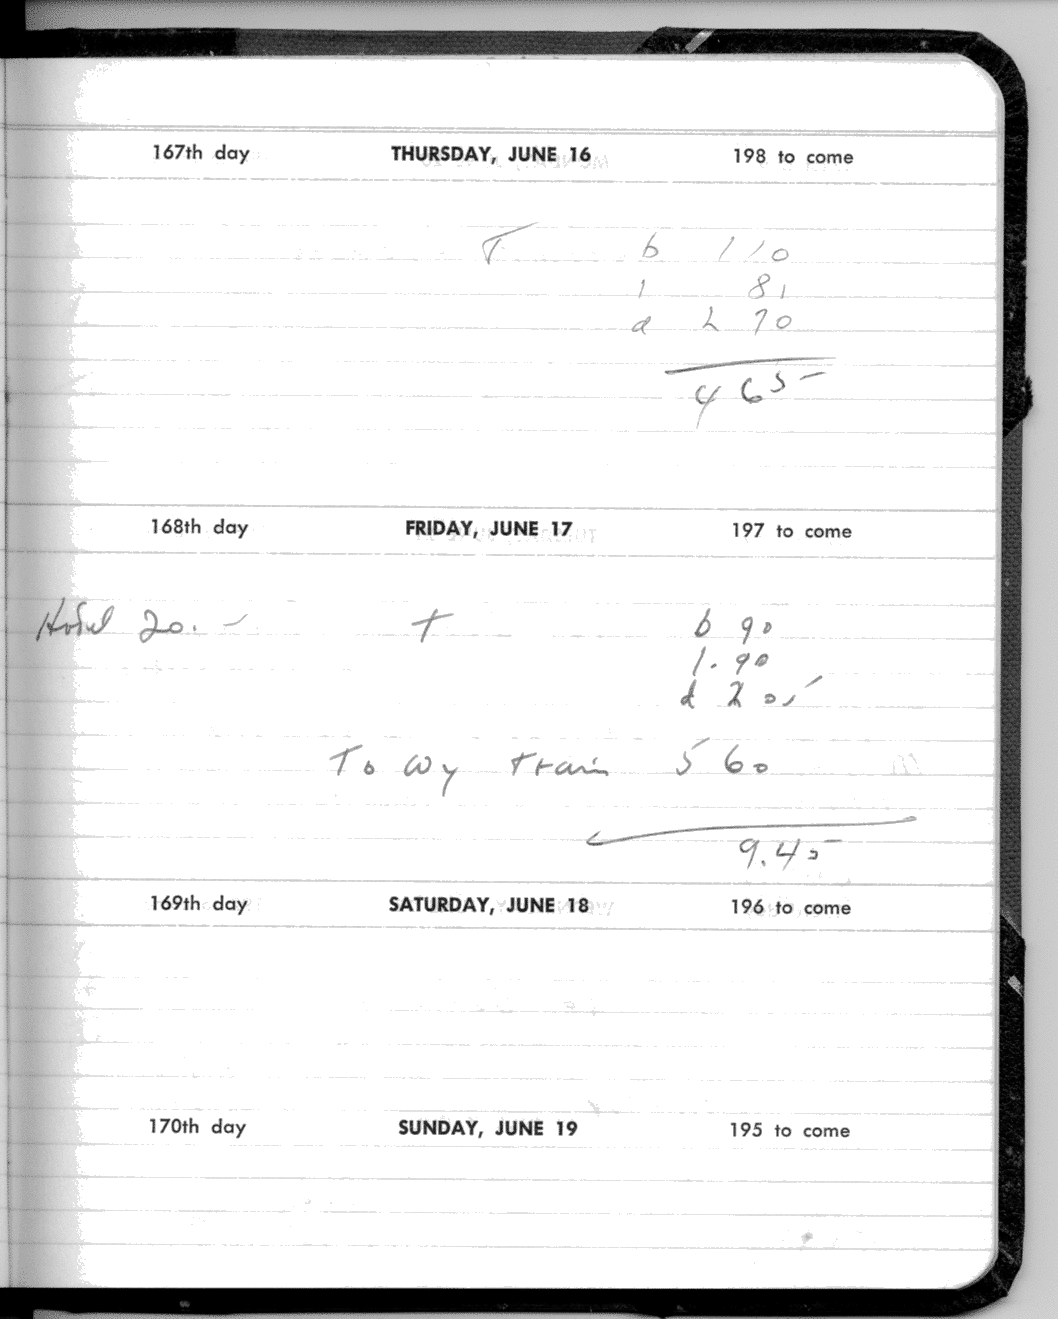 167th day THURSDAY, JUNE 16 198 to come
T b 110
l 81
d 2 70
4 65
168th day FRIDAY, JUNE 17 197 to come
Hotel 20. – T b 90
l. 90
d 2 05
To Wy train 5 60
9.45
169th day SATURDAY, JUNE 18 196 to come
170th day SUNDAY, JUNE 19 195 to come